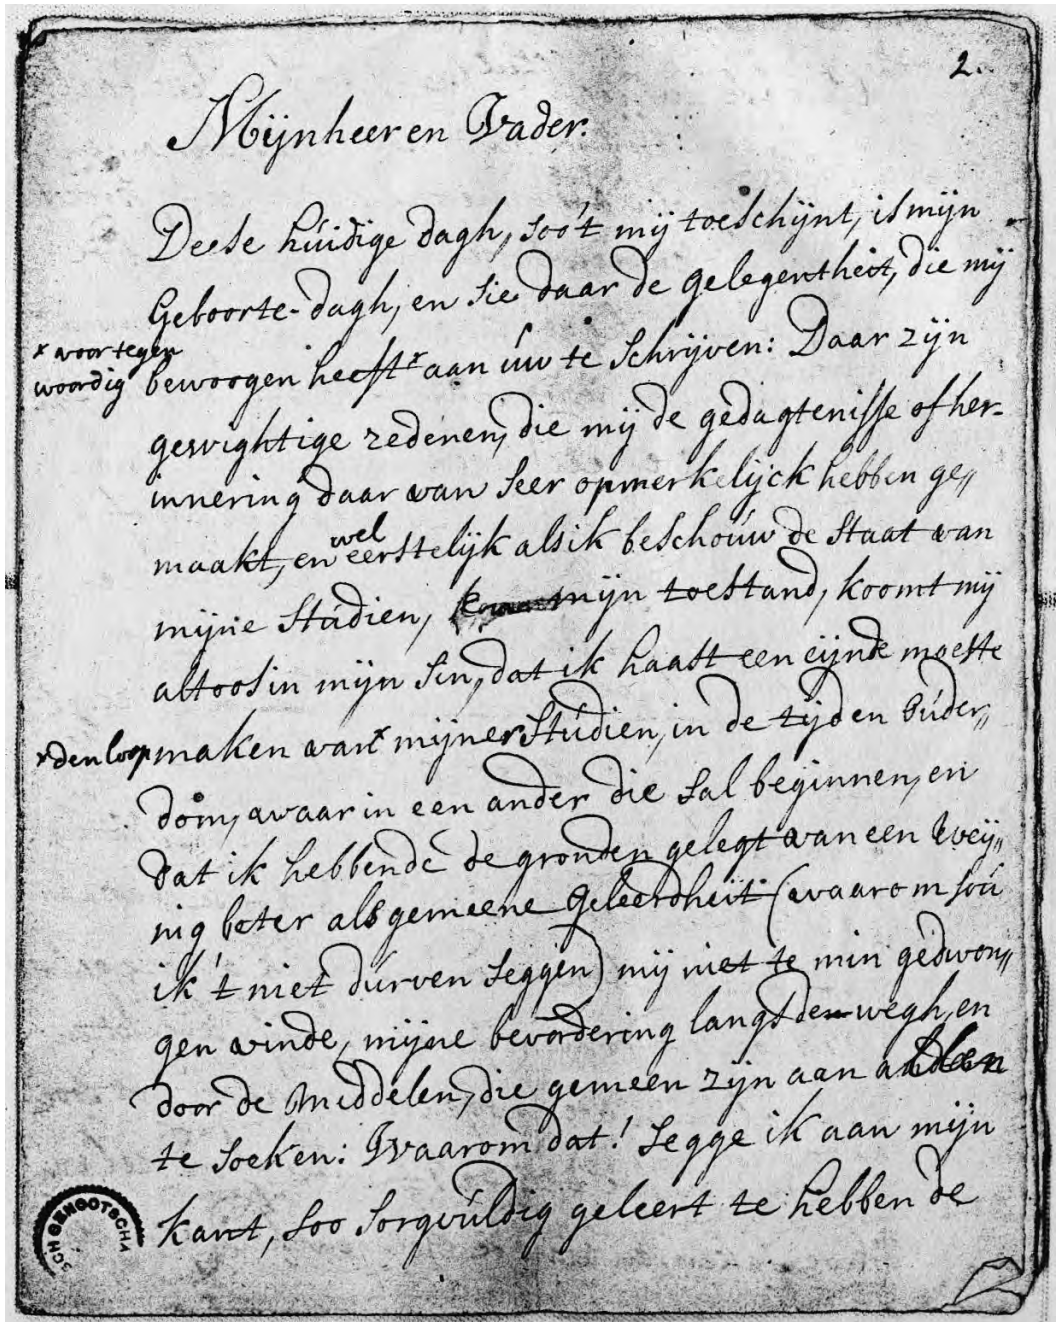 2.
Mijnheer en Vader.
Deese húidige dagh, soo't mij toeschijnt, is mijn
Geboorte-dagh, en sie daar de gelegentheit, die mij
x voor tegen
woordig bewoogen heeft x aan úw te schrijven: Daar zijn
gewightige redenen, die mij de gedagtenisse of her-
innering daar van seer opmerkelijck hebben ge„
maakt, en wel eerstelijk als ik beschoúw de staat van
mijne stúdien, mijn toestand, koomt mij
altoos in mijn sin, dat ik haast een eijnde moeste
x den loop maken van x mijner stúdien, in de tijd en oúder„
dom, waar in een ander die sal beginnen, en
dat ik hebbende de gronden gelegt van een weij„
nig beter als gemeene geleerdheit (waarom soú
ik 't niet dúrven seggen) mij niet te min gedwon„
gen vinde, mijne bevordering langs den wegh, en
door de middelen, die gemeen zijn aan
te soeken: Waarom dat! segge ik aan mijn
kant, soo sorgvúldig geleert te hebben de
SCH GENOOTSCHA